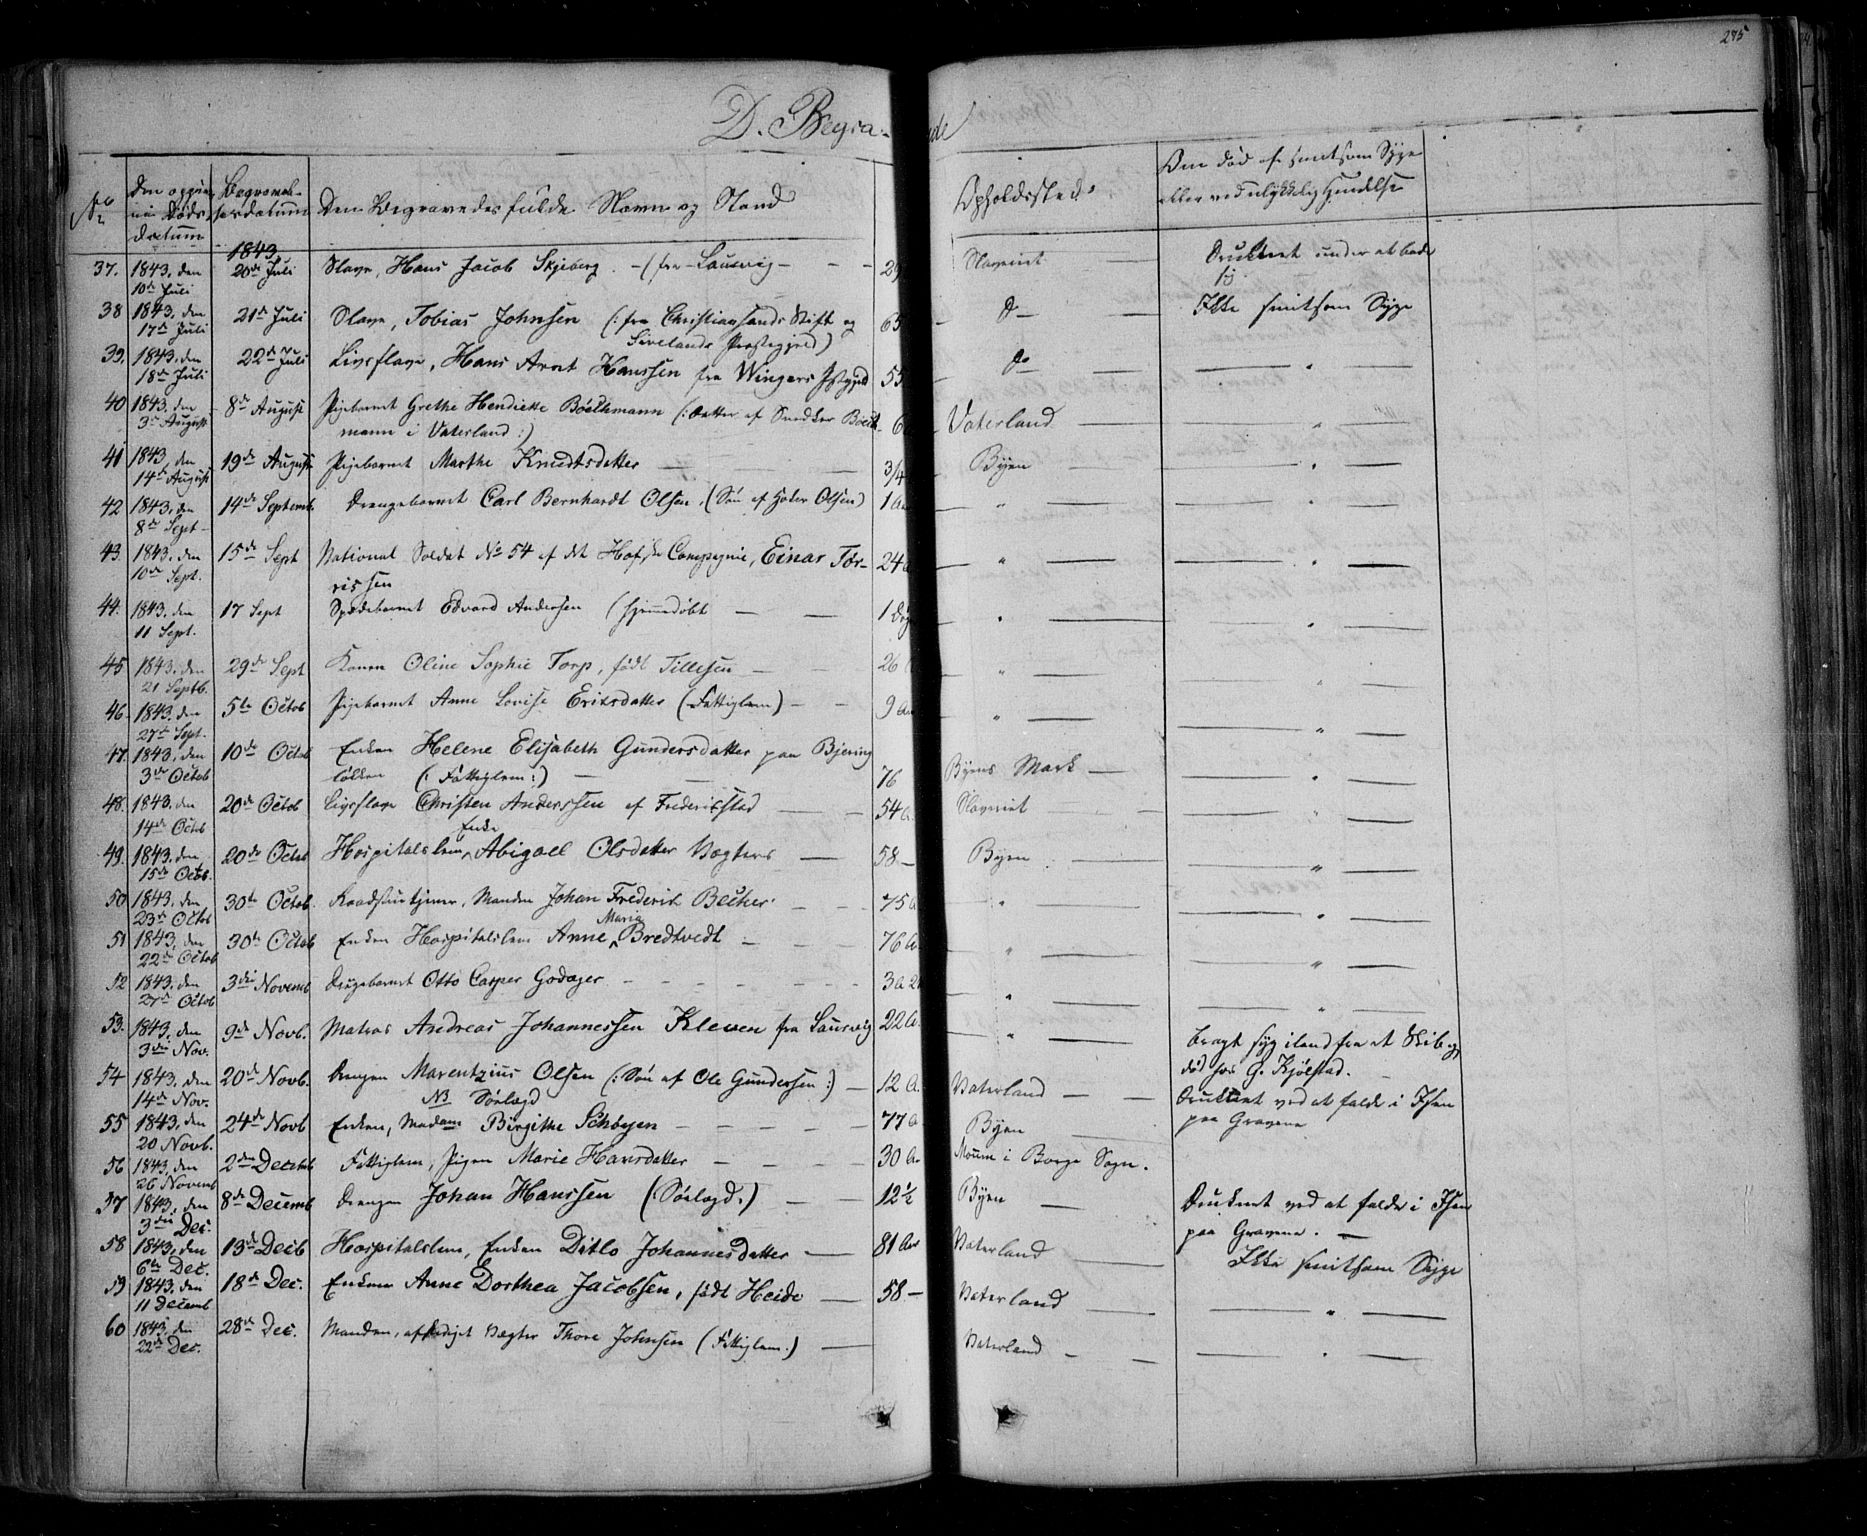 275
D. Begravede
No
Den opgivne Døds-datum
Begravelsesdatum
Den Begravedes fulde Navn og Stand
Opholdssted
Om død af smitsom Syge eller ved ulykkelig Hændelse
1843
37. 1843. den 10de Juli 20de Juli Slave, Hans Jacob Skjeberg (fra Laurvig 29 Slaveriet Druknet under at bade sig
38 1843. den 17de Juli 21de Juli Slave, Tobias Johnsen (: fra Christiansands Stift og Sirelands Præstegjeld) 65 Do Ikke smitsom Syge
39. 1843. den 18de Juli 22de Juli Livsslave, Hans Arnt Hanssen fra Wingers Pstgjeld 55 Do "
40 1843. den 3die August 8de August Pigebarnet Grethe Hendrikke Böethmann (: Datter af Snedker Böethmann i Vaterland :) 6 Vaterland "
41 1843 den 14de August 19de August Pigebarnet Marthe Knudtsdatter 3/4 Byen "
42 1843. den 8de Sept 14de Septemb. Drengebarnet Carl Bernhardt Olsen. (Søn af Olsen) 1 Aar " "
43. 1843. den 10de Sept. 15de Sept National Soldat No 54 af det Compagnie, Einar Torrissen 24 " "
44. 1843. den 11 Sept. 17 Sept Spædebarnet Edvard Andersen (hjemmedøbt 1 " "
45 1843. den 21 Septb. 29de Sept Konen Oline Sophie Torp, født Tillesen 26 " "
46. 1843. den 27de Sept. 5te Octob Pigebarnet Anne Lovise Eriksdatter (Fattiglem) 9 " "
47. 1843. den 3die Octob 10de Octob Enken Helene Elisabeth Gundersdatter paa Bjering løkken (: Fattiglem :) 76 Byens Mark "
48. 1843. den 14de Octob 20de Octob Livsslave Christen Anderssen af Fredericstad 54 A. Slaveriet "
49. 1843. den 15de Octb. 20de Octob Hospitalslem, Enke Abigael Olsdatter Vægters 58 - Byen "
50 1843. den 23de Octob 30te Octob. Raadstuetjener, Manden Johan Frederik Becher 75 " "
51 1843. den 22de Octob 30te Octob Enken Hospitalslem Anne Maria Bredtvedt 76 A. " "
52 1843. den 27de Octob 3die Novemb Drengebarnet Otto Casper Godager 3 A " "
53. 1843. den 3die Nov. 9de Novb. Matros Andreas Johannessen Kleven fra Laurvig 22 A. " bragt syg iland fra et Skib og død hos G. Kjølstad.
54 1843. den 14de Nov. 20de Novb. Drengen Marentzius Olsen (: Søn af Ole Gundersen :) NB Sørlagd 12 A. Vaterland Druknet ved at falde i Isen paa Gravene
55 1843. den 20 Novb. 24de Novb Enken, Madam Birgithe Schøyen 77 A Byen
56 1843. den 26 Novemb 2den Decemb Fattiglem, Pigen Marie Hansdatter 30 A. Moum i Borge Sogn.
57 1843. den 3die Dec. 8de Decemb Drengen Johan Hanssen (Sørlagd.) 12 1/2 Byen Druknet ved at falde i Isen paa Gravene.
58 1843. den 6te Dec. 13de Decb Hospitalslem, Enken Ditlo Johannesdatter 81 Aar Vaterland Ikke smitsom Syge
59 1843. den 11 Decemb 18de Dec. Enken Anne Dorthea Jacobsen, født Heide 58 - Vaterland "
60 1843. den 22de Dec. 28de Dec. Manden, afskediget Vægter Thore Johnsen (Fattiglem.) Vaterland "